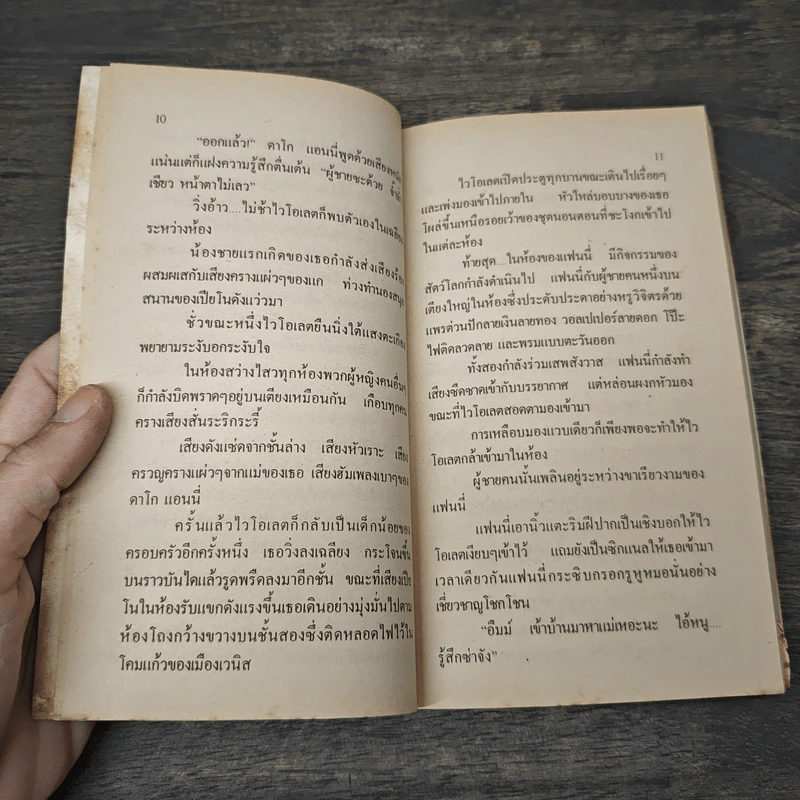 10
“ออกแล้ว!” ดาโก แอนนี่พูดด้วยเสียง
แน่นแต่ก็แฝงความรู้สึกตื่นเต้น “ผู้ชายซะด้วย
เชียว หน้าตาไม่เลว”
วิ่งอ้าว....ไม่ช้าไวโอเลตก็พบตัวเองในเฉลียง
ระหว่างห้อง
น้องชายแรกเกิดของเธอกำลังส่งเสียงร้อง
ผสมผสกับเสียงครางแผ่วๆของแก ท่วงทำนองสนุก
สนานของเปียโนดังแว่วมา
ชั่วขณะหนึ่งไวโอเลตยืนนิ่งใต้แสงตะเกียง
พยายามระงับอกระงับใจ
ในห้องสว่างไสวทุกห้องพวกผู้หญิงคนอื่นๆ
ก็กำลังบิดพราดๆอยู่บนเตียงเหมือนกัน เกือบทุกคน
ครางเสียงสั่นระริกระรี้
เสียงดังแซ่ดจากชั้นล่าง เสียงหัวเราะ เสียง
ครวญครางแผ่วๆจากแม่ของเธอ เสียงฮัมเพลงเบาๆของ
ดาโก แอนนี่
ครั้นแล้วไวโอเลตก็กลับเป็นเด็กน้อยของ
ครอบครัวอีกครั้งหนึ่ง เธอวิ่งลงเฉลียง กระโจนขึ้น
บนราวบันไดแล้วรูดพรืดลงมาอีกชั้น ขณะที่เสียงเปีย
โนในห้องรับแขกดังแรงขึ้นเธอเดินอย่างมุ่งมั่นไปตาม
ห้องโถงกว้างขวางบนชั้นสองซึ่งติดหลอดไฟไว้ใน
โคมแก้วของเมืองเวนิส
11
ไวโอเลตเปิดประตูทุกบานขณะเดินไปเรื่อยๆ
และเพ่งมองเข้าไปภายใน หัวไหล่บอบบางของเธอ
โผล่ขึ้นเหนือรอยเว้าของชุดนอนตอนที่ชะโงกเข้าไป
ในแต่ละห้อง
ท้ายสุด....ในห้องของแฟนนี่ มีกิจกรรมของ
สัตว์โลกกำลังดำเนินไป แฟนนี่กับผู้ชายคนหนึ่งบน
เตียงใหญ่ในห้องซึ่งประดับประดาอย่างหรูวิจิตรด้วย
แพรต่วนปักลายเงินลายทอง วอลเปเปอร์ลายดอก โป๊ะ
ไฟติดลวดลาย และพรมแบบตะวันออก
ทั้งสองกำลังร่วมเสพสังวาส แฟนนี่กำลังทำ
เสียงซืดซาดเข้ากับบรรยากาศ แต่หล่อนผงกหัวมอง
ขณะที่ไวโอเลตสอดตามองเข้ามา
การเหลือบมองแวบเดียวก็เพียงพอจะทำให้ไว
โอเลตกล้าเข้ามาในห้อง
ผู้ชายคนนั้นเพลินอยู่ระหว่างขาเรียวงามของ
แฟนนี่
แฟนนี่เอานิ้วแตะริมฝีปากเป็นเชิงบอกให้ไว
โอเลตเงียบๆเข้าไว้ แถมยังเป็นซิกแนลให้เธอเข้ามา
เวลาเดียวกันแฟนนี่กระซิบกรอกรูหูหมอนั่นอย่าง
เชี่ยวชาญโชกโชน
“อืมม์ เข้าบ้านมาหาแม่เหอะนะ ไอ้หนู....
รู้สึกซ่าจัง”